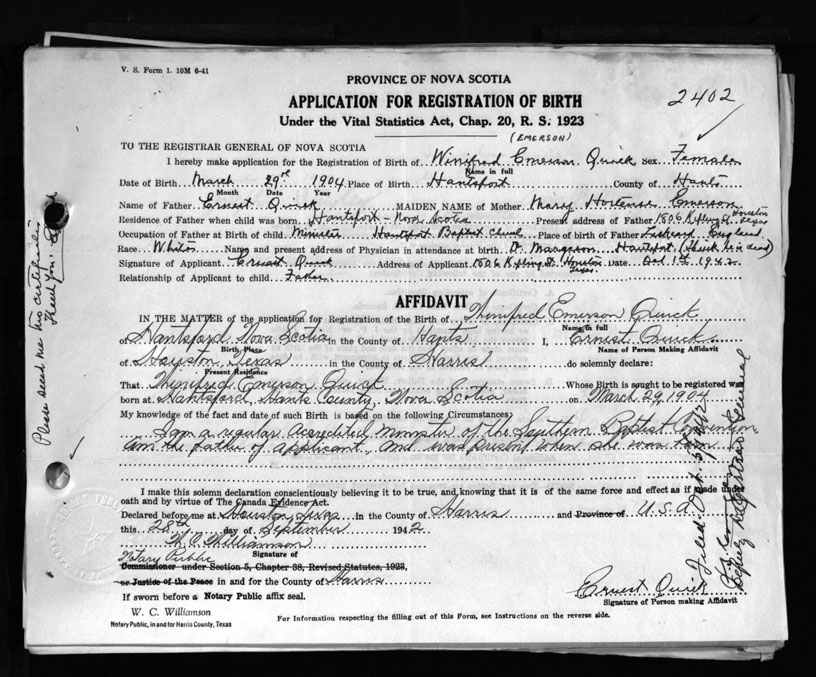 V. S. Form 1. 10M 6-41
PROVINCE OF NOVA SCOTIA
2402
APPLICATION FOR REGISTRATION OF BIRTH
Under the Vital Statistics Act, Chap. 20, R. S. 1923
(EMERSON)
TO THE REGISTRAR GENERAL OF NOVA SCOTIA
I hereby make application for the Registration of Birth of Winifred Emerson Quick Sex Female
Name in full
Date of Birth March 29 1904 Place of Birth Hantsport County of Hants
Month Date Year
Name of Father Ernest Quick MAIDEN NAME of Mother Mary Hortense Emerson
Residence of Father when child was born Hantsport - Nova Scotia Present address of Father 1806 Kipling St. Houston Texas
Occupation of Father at Birth of child Minister Hantsport Baptist Church Place of birth of Father Liskeard England
Race White Name and present address of Physician in attendance at birth Dr. Margeson Hantsport (think he is dead)
Signature of Applicant Ernest Quick Address of Applicant 1806 Kipling St. Houston Texas. Date Oct 1st 1942
Relationship of Applicant to child Father
AFFIDAVIT
IN THE MATTER of the application for Registration of the Birth of Winifred Emerson Quick
Name in full
of Hantsford Nova Scotia in the County of Hants I, Ernest Quick
Birth Place Name of Person Making Affidavit
of Houston, Texas in the County of Harris do solemnly declare:
Present Residence
That Winifred Emerson Quick Whose Birth is sought to be registered was
born at Hantsford, Hants County, Nova Scotia on March 29, 1904
My knowledge of the fact and date of such Birth is based on the following Circumstances:
I am a regular accredited minister of the Southern Baptist Convention
am the father of applicant, and was present when she was born
I make this solemn declaration conscientiously believing it to be true, and knowing that it is of the same force and effect as if made under
oath and by virtue of The Canada Evidence Act.
Declared before me at Houston, Texas in the County of Harris and Province of U.S.A.
this 28th day of September 1942
W. C. Williamson
Signature of
Notary Public
Commissioner under Section 5, Chapter 38, Revised Statutes, 1923,
or Justice of the Peace in and for the County of Harris
If sworn before a Notary Public affix seal.
Ernest Quick
Signature of Person making Affidavit
W. C. Williamson
Notary Public, in and for Harris County, Texas
For Information respecting the filling out of this Form, see Instructions on the reverse side.
Please send me his certificate
Thank you.
Filed Oct. 1942
Deputy Registrar General